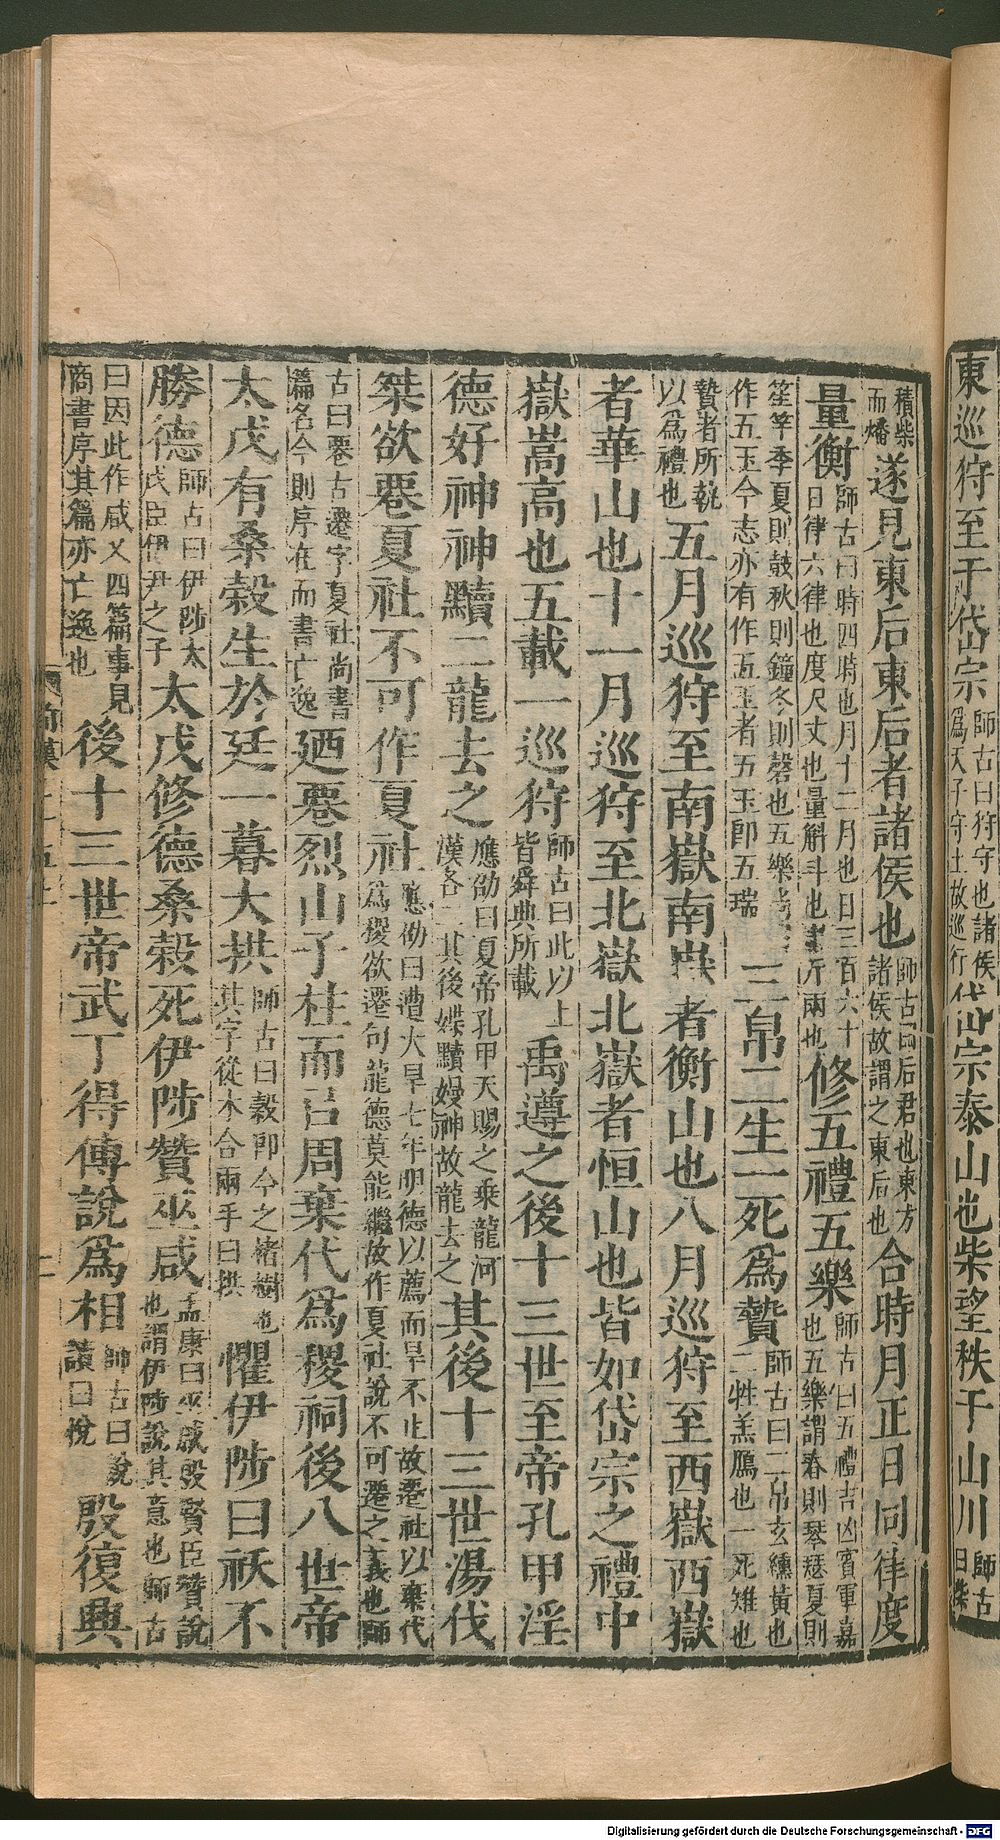 東巡狩至于岱宗師古曰狩守也諸侯爲天子守土故巡行岱宗泰山也柴望秩于山川師古曰柴
積柴而燔遂見東后東后者諸侯也師古曰后君也東方諸侯故謂之東后也合時月正日同律度
量衡師古曰時四時也月十二月也日三百六十日律六律也度尺丈也量斛斗也斤兩也修五禮五樂師古曰五禮吉凶賓軍嘉也五樂謂春則琴瑟夏則
笙竽季夏則鼓秋則鐘冬則磬也五樂尚書作五玉今志亦有作五玉者五玉卽五瑞三帛二生一死爲贄師古曰三帛玄纁黃也二牲羔鴈也一死雉也
贄者所執以爲禮也五月巡狩至南嶽南嶽者衡山也八月巡狩至西嶽西嶽
者華山也十一月巡狩至北嶽北嶽者恒山也皆如岱宗之禮中
嶽嵩高也五載一巡狩師古曰此以上皆舜典所載禹遵之後十三世至帝孔甲淫
德好神神黷二龍去之應劭曰夏帝孔甲天賜之乘龍河漢各二其後媟黷嫚神故龍去之其後十三世湯伐
桀欲䙴夏社不可作夏社應劭曰遭大旱七年明德以薦而旱不止故遷社以棄代爲稷欲遷句龍德莫能繼故作夏社說不可遷之義也師
古曰䙴古遷字夏社尚書篇名今則序在而書亡逸廼䙴烈山子柱而以周棄代爲稷祠後八世帝
太戊有桑穀生於廷一暮大拱師古曰穀卽今之楮樹也其字從木合兩手曰拱懼伊陟曰祅不
勝德師古曰伊陟太戊臣伊尹之子太戊修德桑穀死伊陟贊巫咸孟康曰巫咸殷賢臣贊說也謂伊陟說其意也師古
曰因此作咸乂四篇事見商書序其篇亦亡逸也後十三世帝武丁得傅說爲相師古曰說讀曰悅殷復興
Digitalisierung gefördert durch die Deutsche Forschungsgemeinschaft - DFG